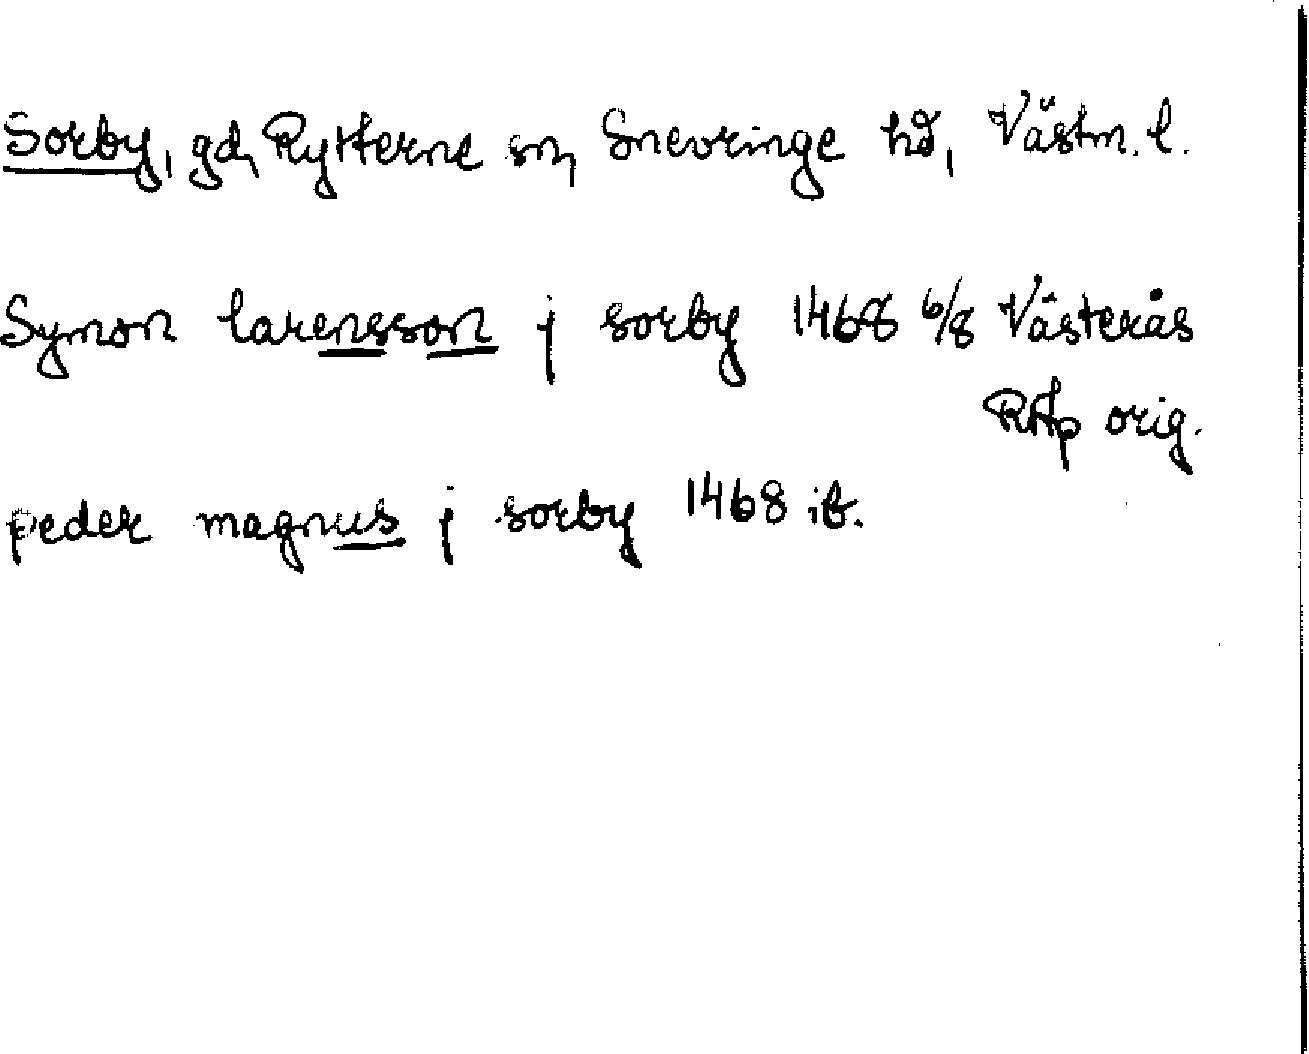 Sorby, gd, Rytterne sn, Snevringe hd, Västm. l.
Symon larensson j sorby 1468 6/8 Västerås
RAp orig.
peder magnus j sorby 1468 ib.